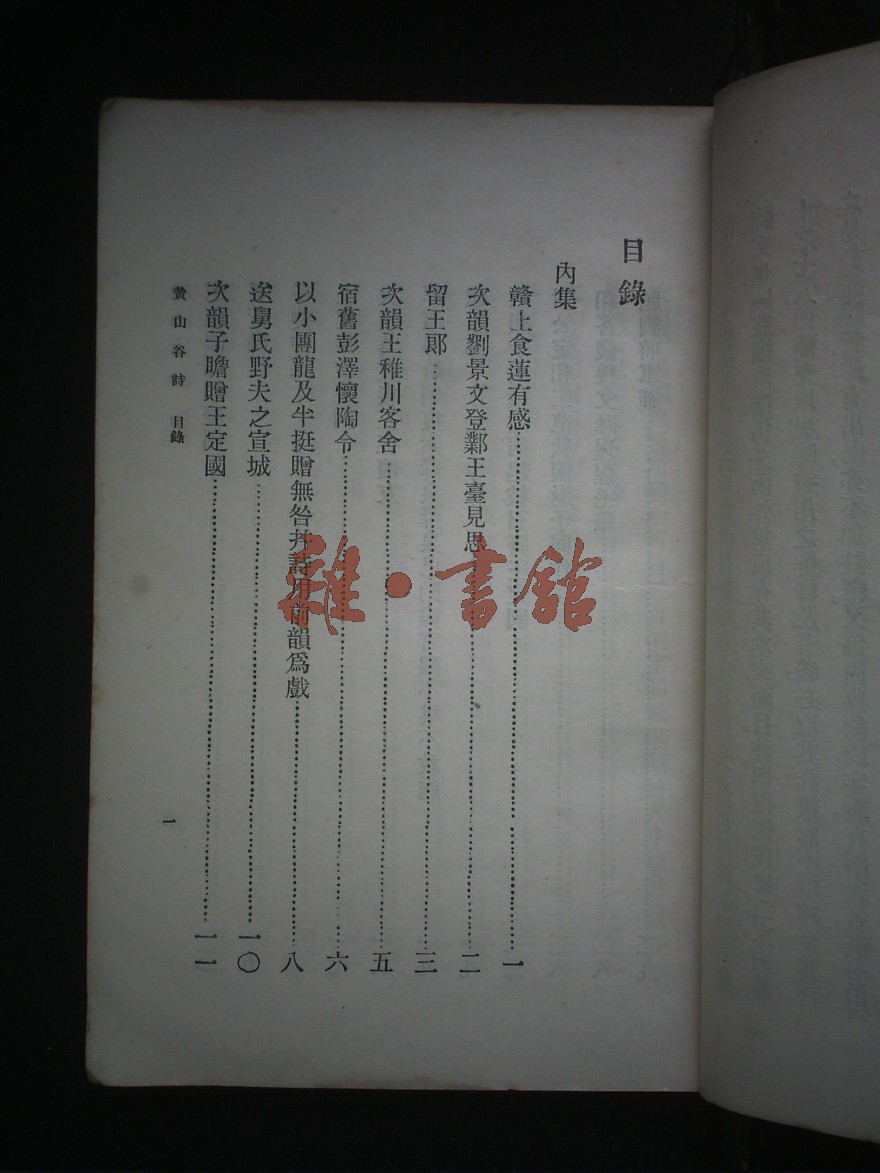 目錄
內集
贛上食蓮有感……一
次韻劉景文登鄴王臺見思……二
留王郎……三
次韻王稚川客舍……五
宿舊彭澤懷陶令……六
以小團龍及半挺贈無咎并詩用前韻爲戲……八
送舅氏野夫之宣城……一〇
次韻子瞻贈王定國……一一
黄山谷詩 目錄
一
雜·書館